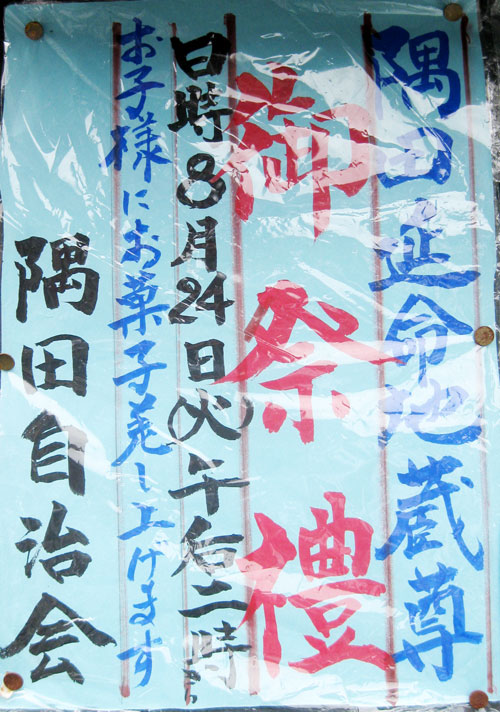 隅田延命地蔵尊
御祭禮
日時8月24日(火)午后二時
お子様にお菓子差し上げます
隅田自治会